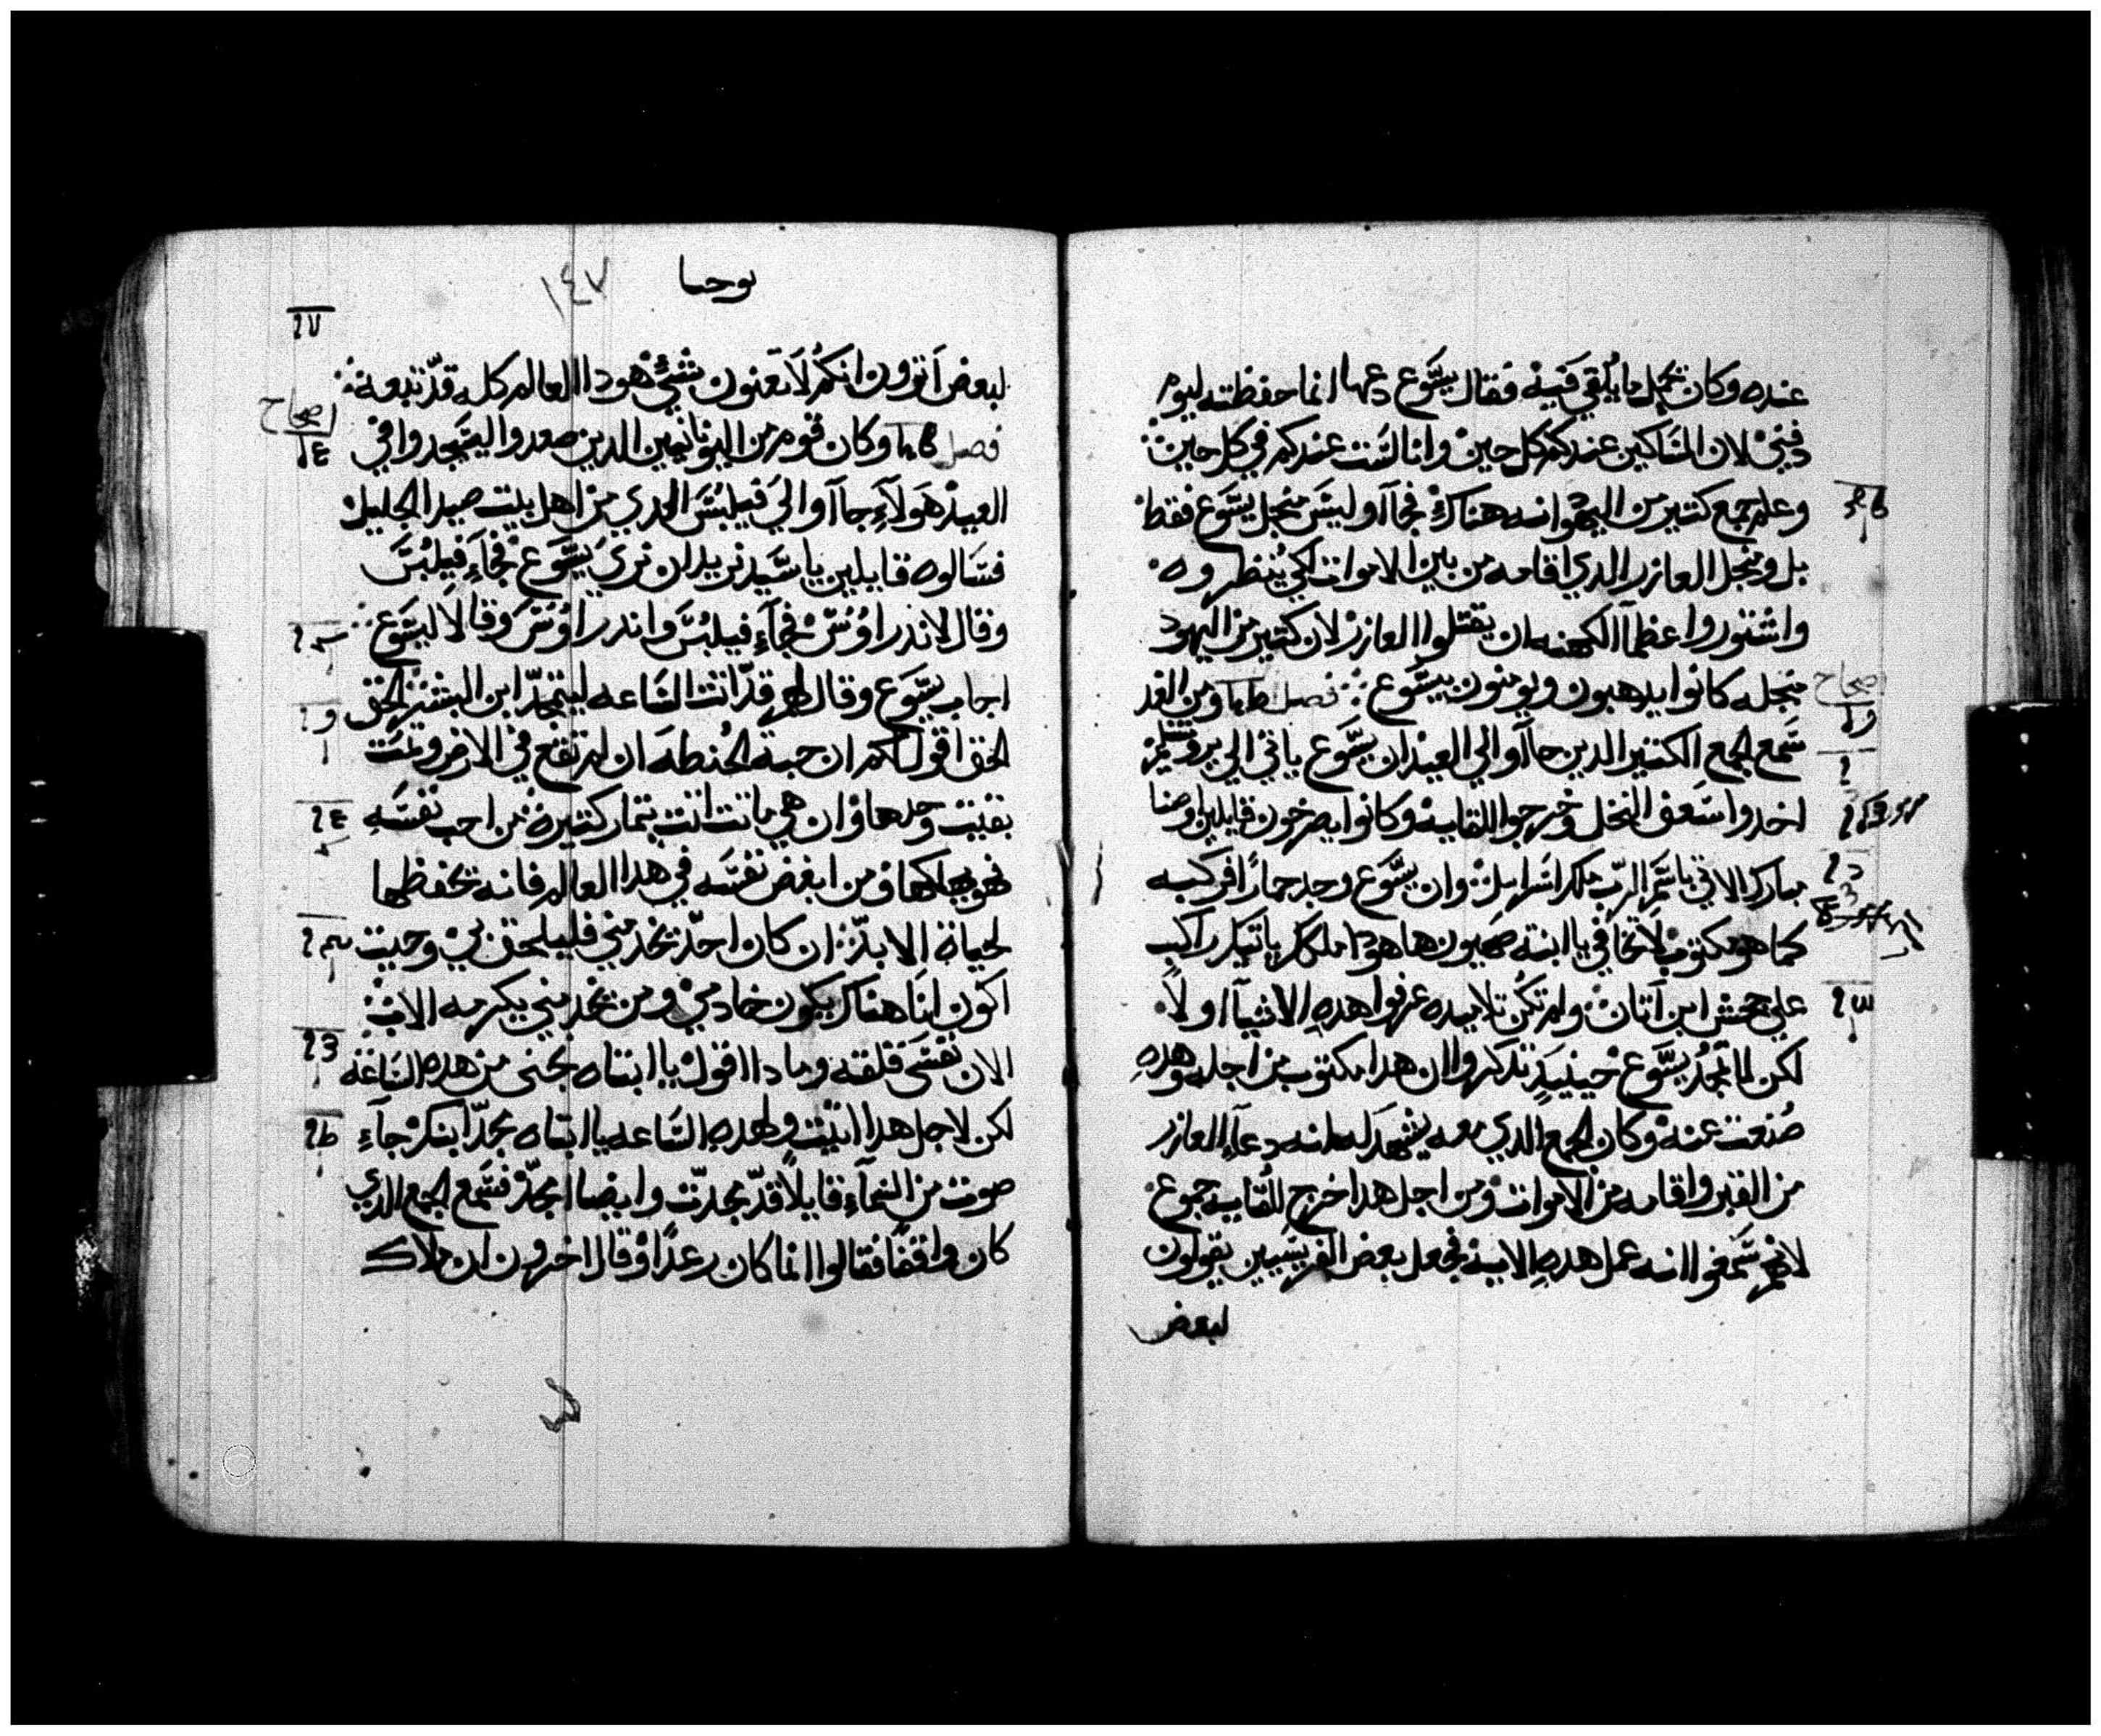 عنده وكان يحمل ما يلقي فيه فقال يسوع دعها انما حفظته ليوم
دفني لان المساكين عندكم كل حين وانا لست عندكم في كل حين
وعلم جمع كتير من اليهود انه هناك فجاآوا ليس منجل يسوع فقط
بل ومنجل العازر الدي اقامه من بين الاموات لكي ينظروه
واشتوروا عظمآ الكهنه ان يقتلوا العازر لان كتير من اليهود
منجله كانوا يدهبون ويومنون بيسوع فصل ومن الغد
سمع الجمع الكتير الدين جاآوا الي العيد ان يسوع ياتي الي يروشليم
اخدوا سعف النخل وخرجوا للقايه وكانوا يصرخون قايلين اوصنا
مبارك الاتي باسم الرب ملك اسراييل وان يسوع وجد حمارًا فركبه
كما هو مكتوب لا تخافي يا ابنة صهيون ها هودا ملكك ياتيك راكب
علي جحش ابن اتان ولم تكن تلاميده عرفوا هده الاشيآ اولًا
لكن لما تمجد يسوع حينيدٍ تدكروا ان هدا مكتوب من اجله وهده
صُنعت عنه وكان الجمع الدي معه يشهد له انه دعآ العازر
من القبر واقامه من الاموات ومن اجل هدا خرج للقايه جموع
لانهم سمعوا انه عمل هده الايه فجعل بعض الفريسيين يقولون
لبعض
يوحنا ١٤٧
لبعض اترون انكم لا تعنون بشي هودا العالم كله قد تبعه
فصل وكان قوم من اليونانيين الدين صعدوا ليسجدوا في
العيد هولآءِ جاآوا الي فيلبس الدي من اهل بيت صيدا الجليل
فسالوه قايلين يا سيد نريد ان نري يسوع فجاءِ فيلبس
وقال لاندراوس فجاءِ فيلبس واندراوس وقالا ليسوع
اجاب يسوع وقال لهم قد اتت الساعه ليتمجد ابن البشر الحق
الحق اقول لكم ان حبة الحنطه ان لم تقع في الارض وتمت
بقيت وحدها وان هي ماتت اتت بتمار كتيرة من احب نفسه
فهو يهلكها ومن ابغض نفسه في هدا العالم فانه يحفظها
لحياة الابد ان كان احد يخدمني فليلحق بي وحيت
اكون انا هناك يكون خادمي ومن يخدمني يكرمه الاب
الان نفسي قلقه ومادا اقول يا ابتاه نجني من هده الساعة
لكن لاجل هدا اتيت ولهده الساعه يا ابتاه مجد ابنك جآءِ
صوت من السمآءِ قايلًا قد مجدت وايضا امجد فسمع الجمع الدي
كان واقفًا فقالوا انما كان رعدًا وقال اخرون ان ملاك
اصحاح
اصحاح